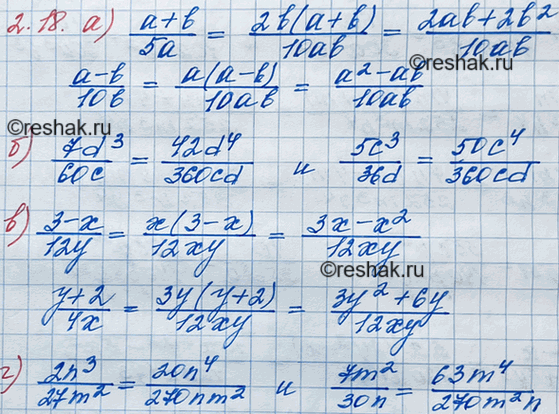 2.18. а) (a+b)/5a = 2b(a+b)/10ab = (2ab+2b²)/10ab
(a-b)/10b = a(a-b)/10ab = (a²-ab)/10ab
©reshak.ru
©reshak.ru
б) 7d³/60c = 42d⁴/360cd и 5c³/36d = 50c⁴/360cd
в) (3-x)/12y = x(3-x)/12xy = (3x-x²)/12xy
©reshak.ru
(y+2)/4x = 3y(y+2)/12xy = (3y²+6y)/12xy
г) 2n³/27m² = 20n⁴/270nm² и 7m²/30n = 63m⁴/270m²n